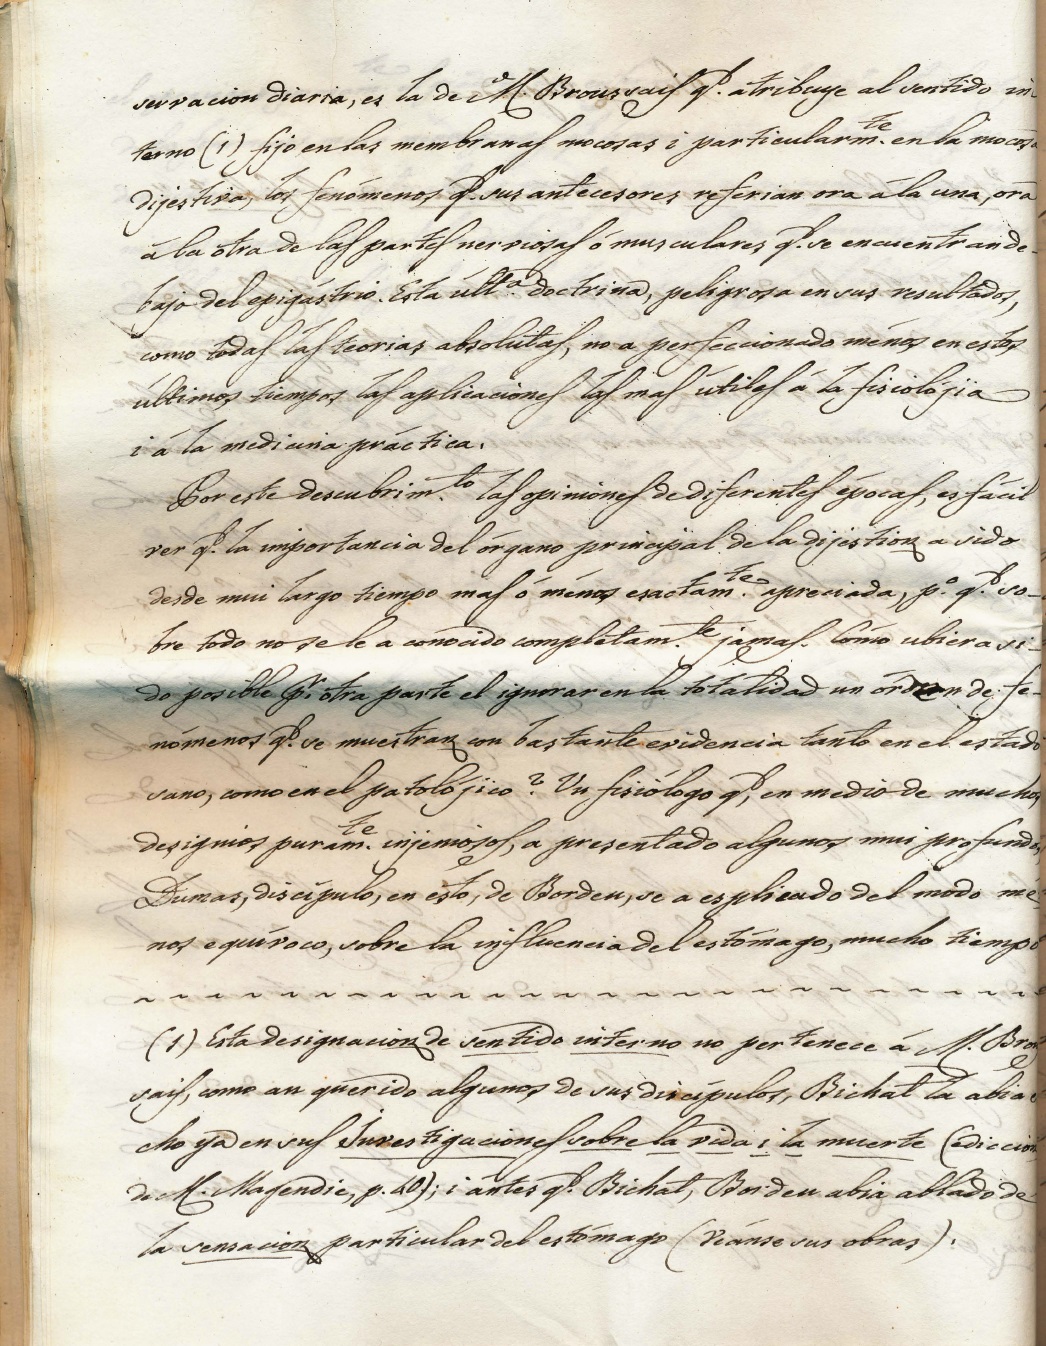 servacion diaria, es la de M. Broussais q.e atribuye al sentido in-
terno (1) fijo en las membranas mocosas i particularm.te en la mocosa
dijestiva, los fenómenos q.e sus antecesores referian ora á la una, ora
á la otra de las partes nerviosas ó musculares q.e se encuentran de-
bajo del epigástrio. Esta últ.a doctrina, peligrosa en sus resultados,
como todas las teorias absolutas, no a perfeccionado ménos en estos
últimos tiempos las aplicaciones las mas útiles á la fisiolójia
i á la medicina práctica.
Por este descubrim.to las opiniones de diferentes épocas, es fácil
ver q.e la importancia del órgano principal de la dijestion a sido
desde mui largo tiempo mas ó ménos esactam.te apreciada, p.o q.e so-
bre todo no se le a conocido completam.te jamas. Cómo ubiera si-
do posible p.r otra parte el ignorar en la totalidad un órden de fe-
nómenos q.e se muestran con bastante evidencia tanto en el estado
sano, como en el patolójico? Un fisiólogo q.e, en medio de muchos
designios puram.te injeniosos, a presentado algunos mui profundos,
Dumas, discípulo, en esto, de Bordeu, se a esplicado del modo mé-
nos equívoco, sobre la influencia del estómago, mucho tiempo
(1) Esta designacion de sentido interno no pertenece á M. Brous
sais, como an querido algunos de sus discípulos, Bichat la abia
cho ya en sus Investigaciones sobre la vida i la muerte (ediccion
de M. Magendie, p. 40); i ántes q.e Bichat, Bordeu abia ablado de
la sensacion particular del estómago (Véanse sus obras).